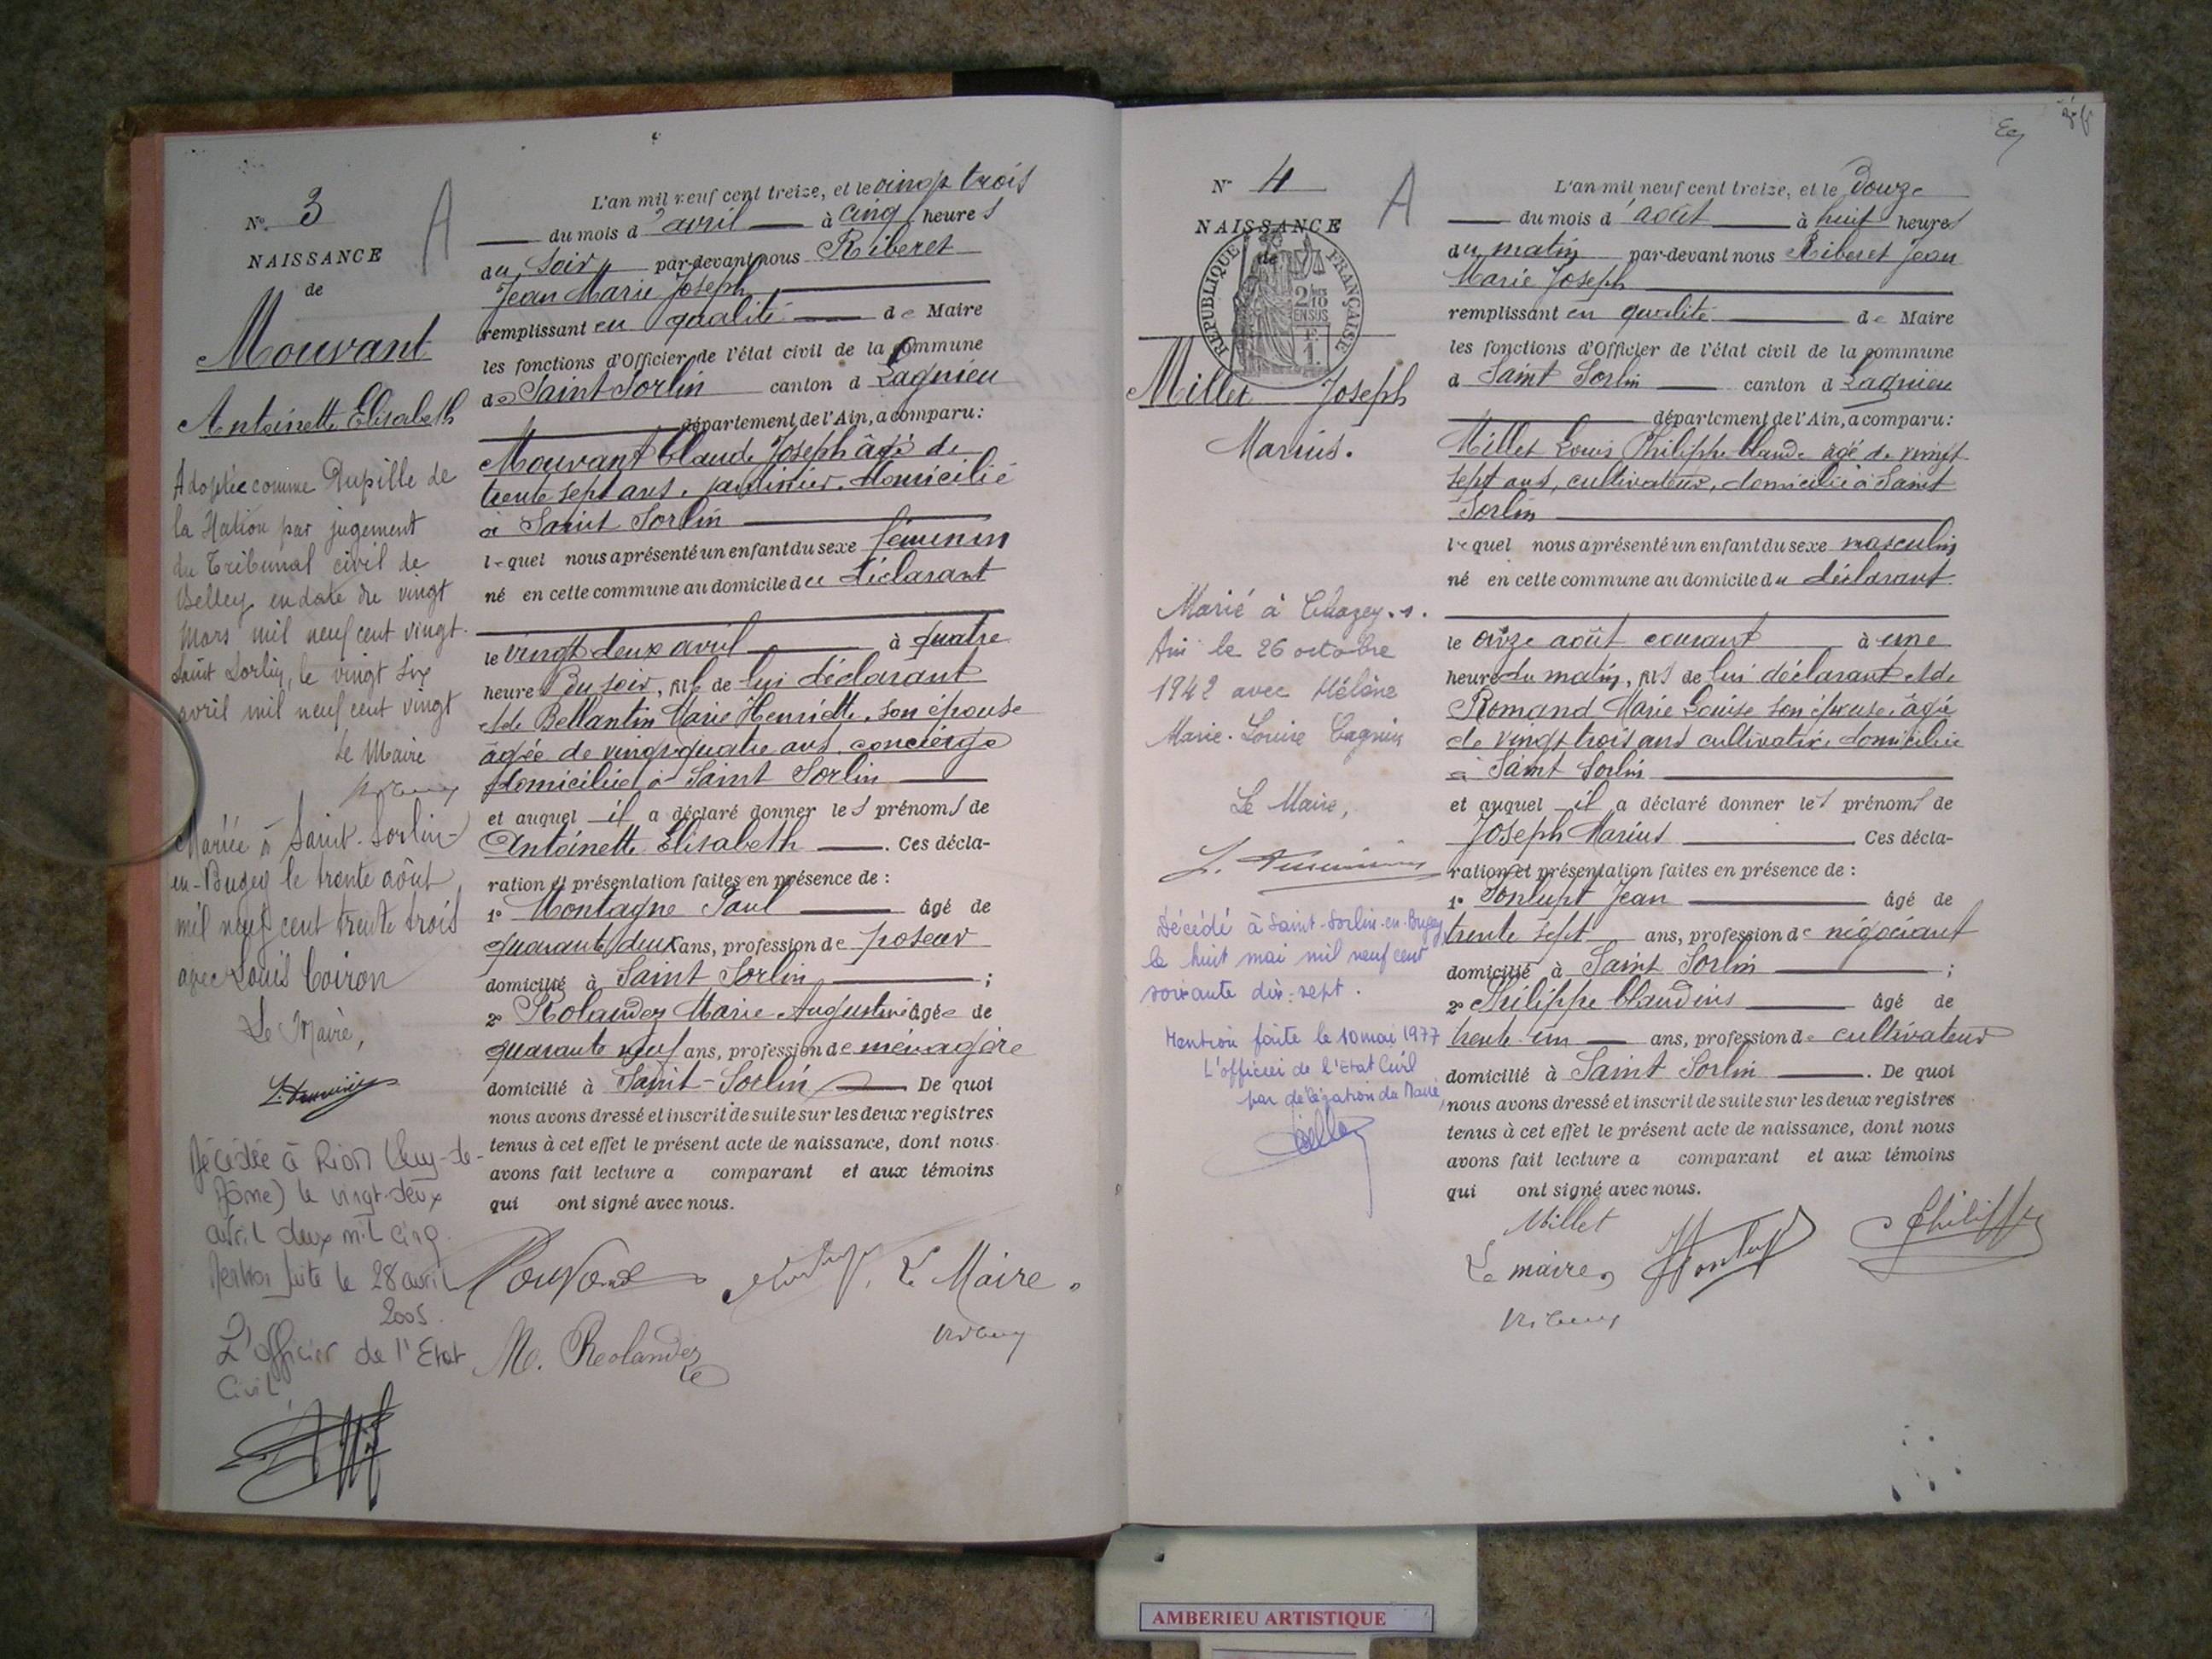 N° 3
NAISSANCE
de
Mouvant
Antoinette Elisabeth
Adoptée comme Pupille de
la Nation par jugement
du Tribunal civil de
Belley en date du vingt
Mars mil neuf cent vingt.
Saint Sorlin, le vingt six
avril mil neuf cent vingt
Le Maire
Mariée à Saint-Sorlin-
en-Bugey le trente août
mil neuf cent trente trois
avec Louis Coiron
Le Maire,
Décédée à Riom (Puy-de-
Dôme) le vingt-deux
avril deux mil cinq.
Mention faite le 28 avril
2005.
L'officier de l'Etat
Civil,
A
L'an mil neuf cent treize, et le vingt trois
du mois d avril à cinq heures
du soir par-devant nous Riberet
Jean Marie Joseph
remplissant en qualité de Maire
les fonctions d'Officier de l'état civil de la commune
de Saint Sorlin canton d Lagnieu
département de l'Ain, a comparu:
Mouvant Claude Joseph âgé de
trente sept ans, jardinier, domicilié
à Saint Sorlin
lequel nous a présenté un enfant du sexe féminin
né en cette commune au domicile du déclarant
le vingt deux avril à quatre
heures du soir, fil de lui déclarant
et de Bellantin Marie Henriette, son épouse
âgée de vingt-quatre ans, concierge
domiciliée à Saint Sorlin
et auquel il a déclaré donner les prénoms de
Antoinette Elisabeth . Ces décla-
ration et présentation faites en présence de :
1° Montagne Paul âgé de
quarante deux ans, profession de poseur
domicilié à Saint Sorlin ;
2° Rolandez Marie Augustine âgée de
quarante neuf ans, profession de ménagère
domicilié à Saint-Sorlin De quoi
nous avons dressé et inscrit de suite sur les deux registres
tenus à cet effet le présent acte de naissance, dont nous
avons fait lecture a comparant et aux témoins
qui ont signé avec nous.
Mouvant Le Maire.
M. Rolandez
N° 4
NAISSANCE
de
RÉPUBLIQUE FRANÇAISE
Millet Joseph
Marius.
Marié à Chazey.s.
Ain le 26 octobre
1942 avec Hélène
Marie-Louise Cagnin
Le Maire,
Décédé à Saint-Sorlin-en-Bugey
le huit mai mil neuf cent
soixante dix-sept.
Mention faite le 10 mai 1977
L'officier de l'Etat Civil
par délégation du Maire,
A
L'an mil neuf cent treize, et le douze
du mois d'août à huit heures
du matin par-devant nous Riberet Jean
Marie Joseph
remplissant en qualité de Maire
les fonctions d'Officier de l'état civil de la commune
d Saint Sorlin canton d Lagnieu
département de l'Ain, a comparu:
Millet Louis Philippe Claude âgé de vingt
sept ans, cultivateur, domicilié à Saint
Sorlin
lequel nous a présenté un enfant du sexe masculin
né en cette commune au domicile du déclarant
le onze août courant à une
heure du matin, fils de lui déclarant et de
Romand Marie Louise son épouse, âgée
de vingt trois ans cultivatrice domiciliée
à Saint Sorlin
et auquel il a déclaré donner les prénoms de
Joseph Marius Ces décla-
ration et présentation faites en présence de :
1° Jean âgé de
trente sept ans, profession de négociant
domicilié à Saint Sorlin ;
2° Philippe Claudius âgé de
trente-un ans, profession de cultivateur
domicilié à Saint Sorlin . De quoi
nous avons dressé et inscrit de suite sur les deux registres
tenus à cet effet le présent acte de naissance, dont nous
avons fait lecture a comparant et aux témoins
qui ont signé avec nous.
Millet
Le maire, Philippe
AMBERIEU ARTISTIQUE